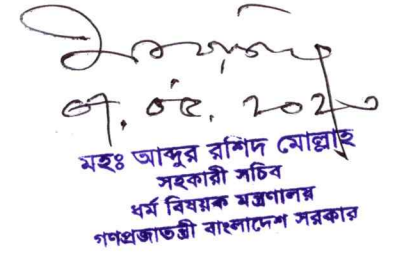 ০৭.০৫.২০২০
মহঃ আব্দুর রশিদ মোল্লাহ
সহকারী সচিব
ধর্ম বিষয়ক মন্ত্রণালয়
গণপ্রজাতন্ত্রী বাংলাদেশ সরকার